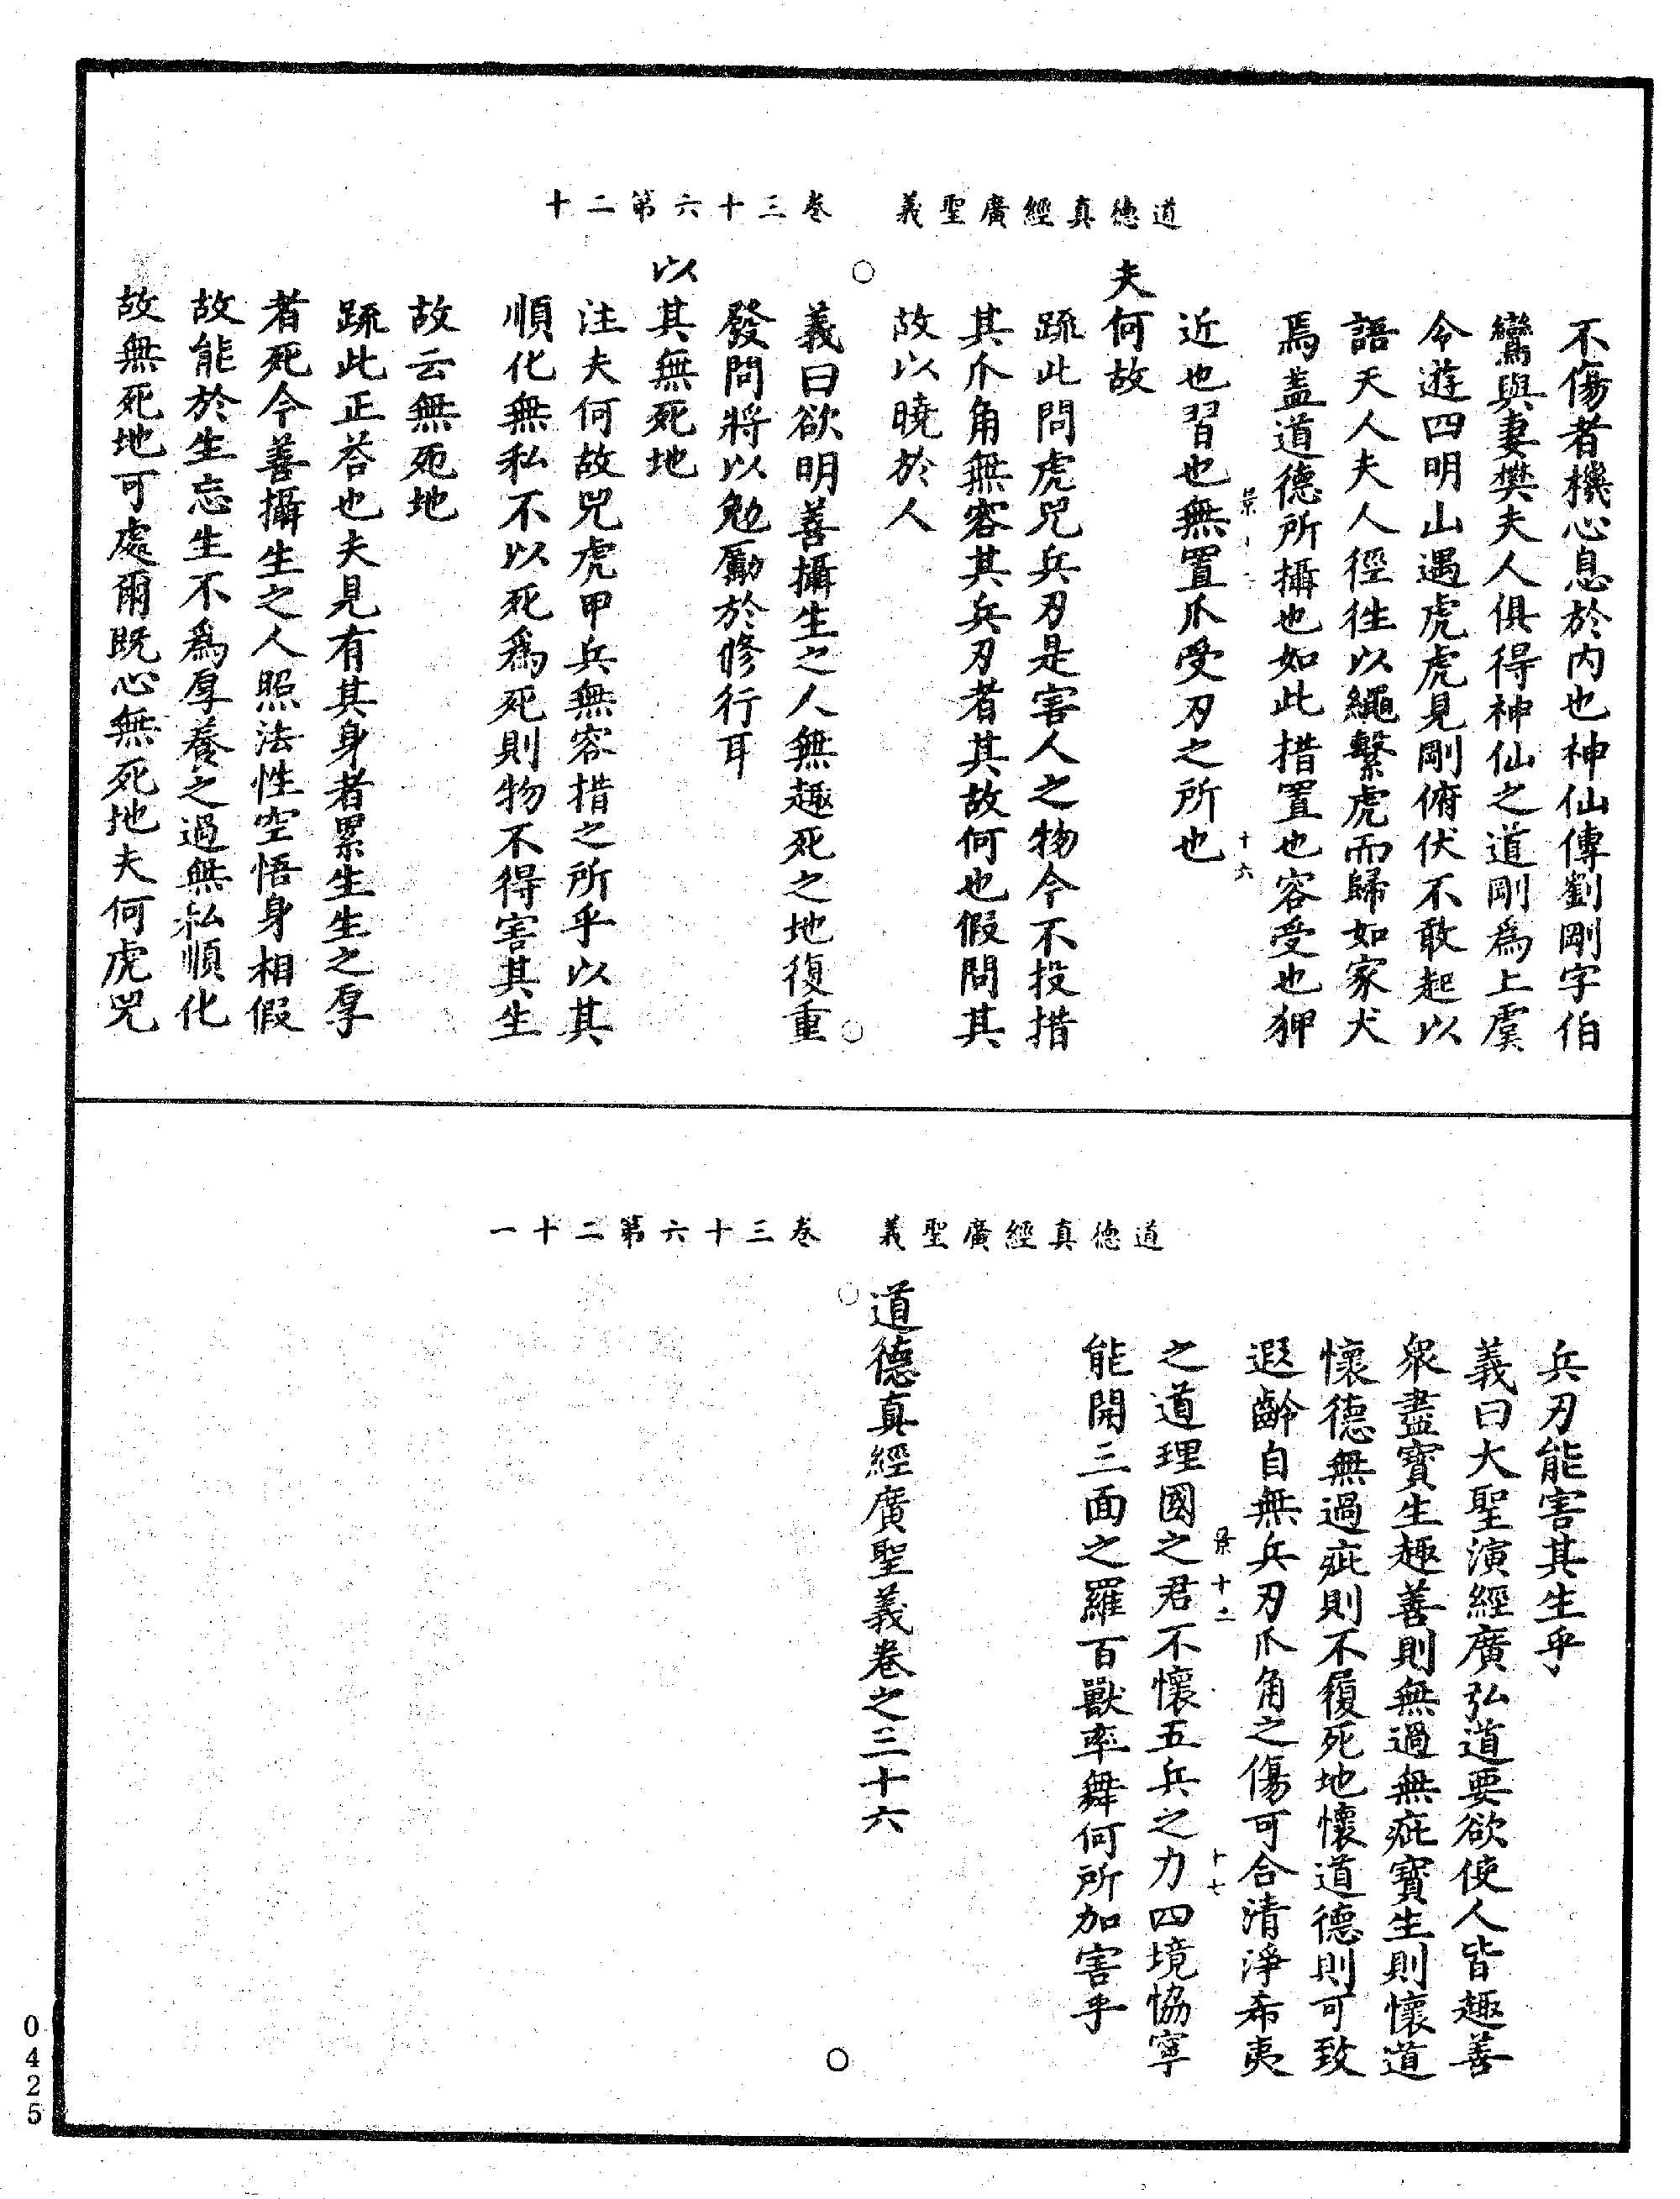 道德真經廣聖義　卷三十六第二十
不傷者機心息於內也神仙傳劉剛字伯
鸞與妻樊夫人俱得神仙之道剛爲上虞
令遊四明山遇虎虎見剛俯伏不敢起以
語天人夫人徑往以繩繫虎而歸如家犬
焉盖道德所攝也如此措置也容受也狎
近也習也無置爪受刃之所也
十六
夫何故
䟽此問虎兕兵刃是害人之物今不投措
其爪角無容其兵刃者其故何也假問其
故以曉於人
義曰欲明善攝生之人無趣死之地復重
發問將以勉厲於修行耳
以其無死地
注夫何故兕虎甲兵無容措之所乎以其
順化無私不以死爲死則物不得害其生
故云無死地
䟽此正荅也夫見有其身者累生生之厚
者死今善攝生之人照法性空悟身相假
故能於生忘生不爲厚養之過無私順化
故無死地可處爾既心無死地夫何虎兕
道德真經廣聖義　卷三十六第二十一
兵刃能害其生乎
義曰大聖演經廣弘道要欲使人皆趣善
衆盡寳生趣善則無過無疵寳生則懷道
懷德無過疵則不履死地懷道德則可致
遐齡自無兵刃爪角之傷可合清淨希夷
十七
之道理國之君不懷五兵之力四境恊寧
能開三面之羅百獸率舞何所加害乎
道德真經廣聖義卷之三十六
0425